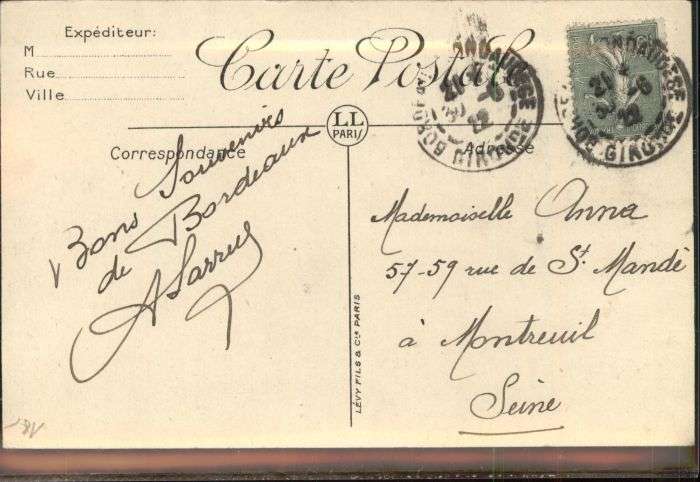 Expéditeur:
M
Rue
Ville
Carte Postale
LL
PARIS
Correspondance
Adresse
Bons Souvenirs
de Bordeaux
A Sarreu
Mademoiselle Anna
57-59 rue de St Mandé
à Montreuil
Seine
LÉVY FILS & Cie PARIS
BORDEAUX
GIRONDE
22
GIRONDE
22